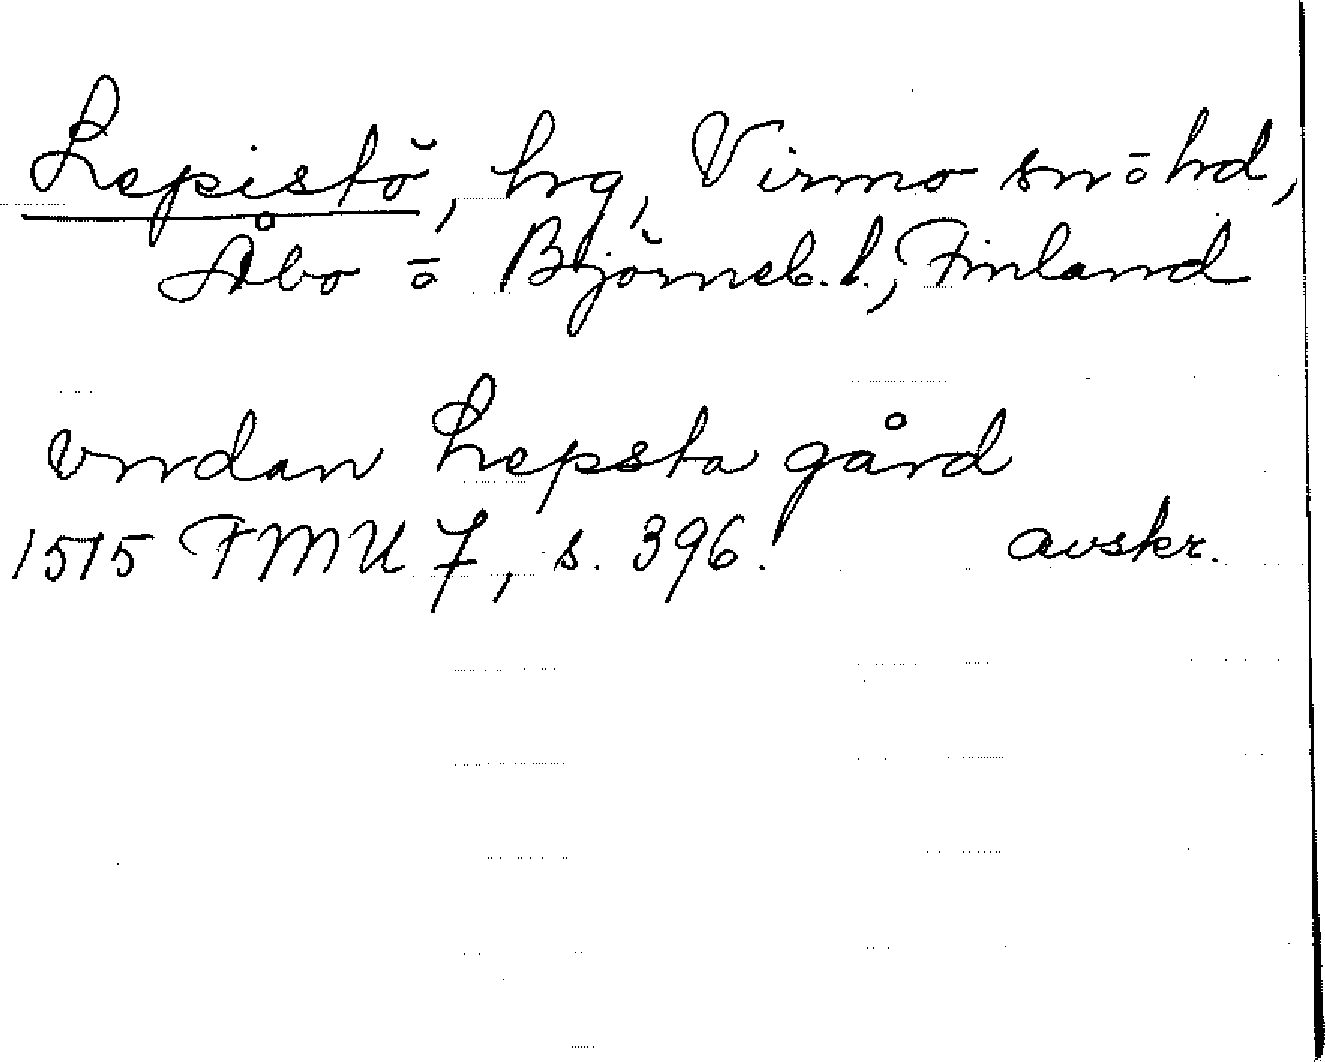 Lepistö, hg, Virmo sn o hd,
Åbo o Björneb. l., Finland
vndan Lepsta gård
1515 FMU 7, s. 396. avskr.